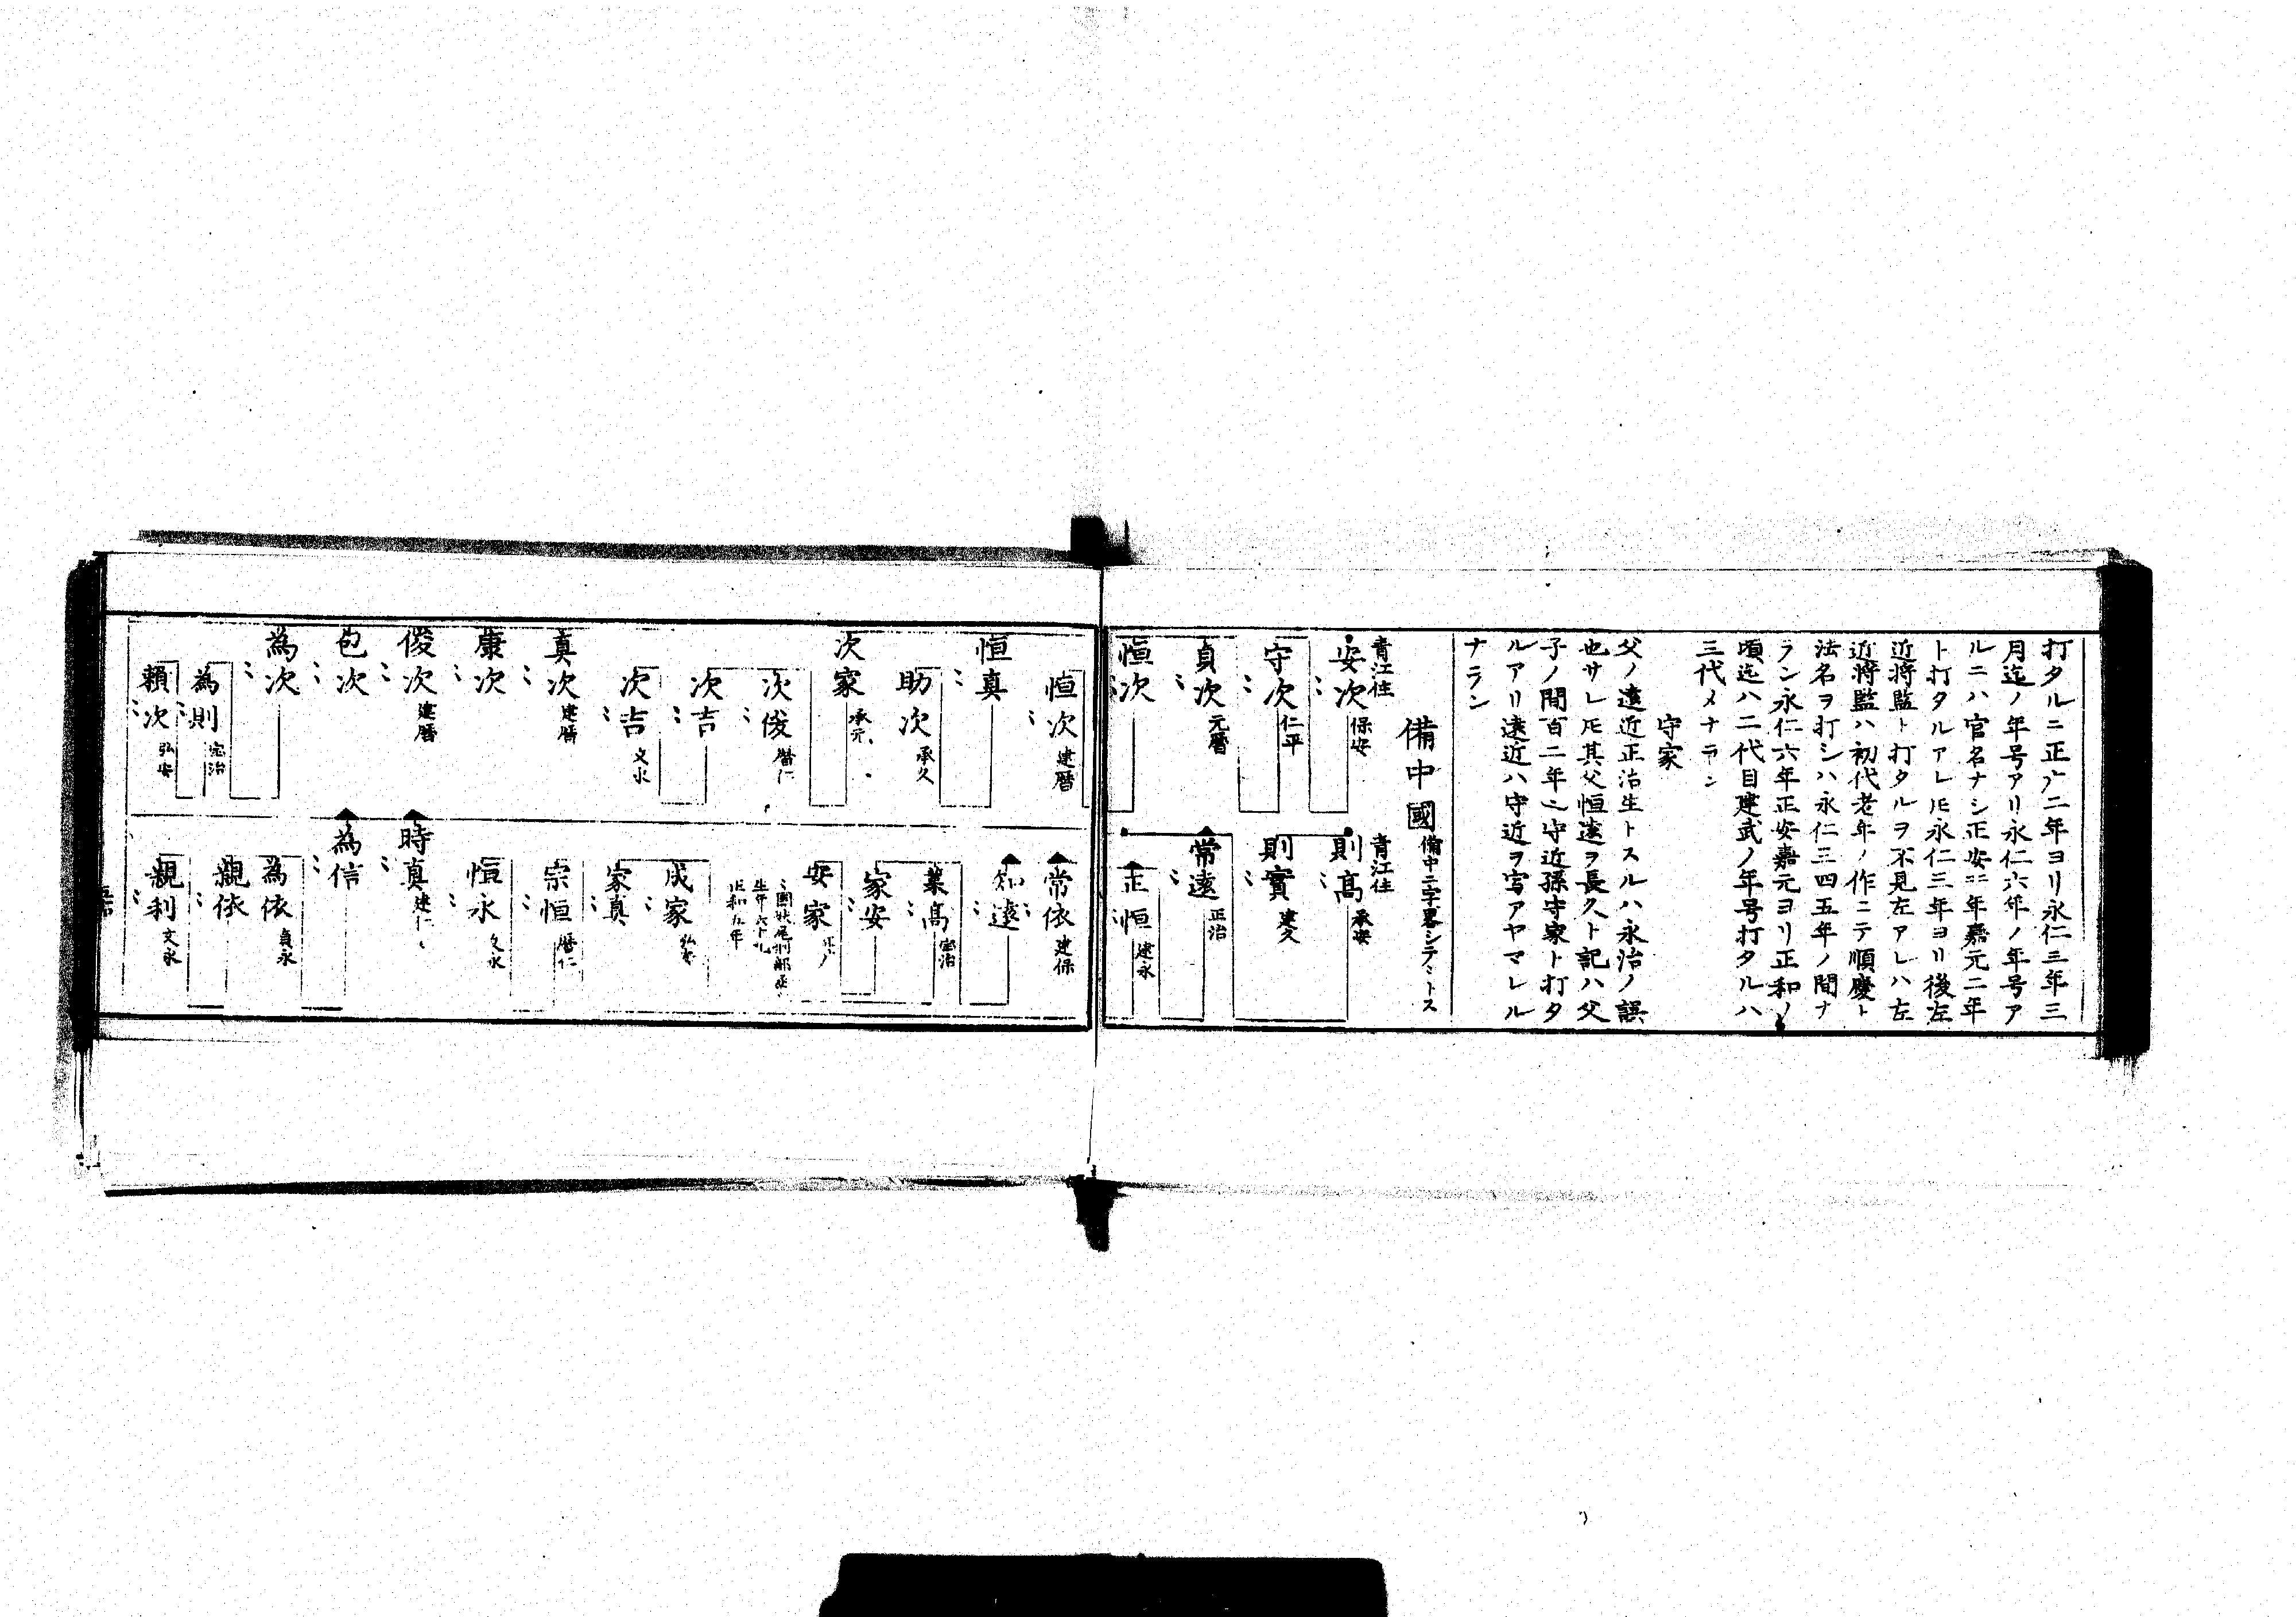 打タルニ正广二年ヨリ永仁三年三
月迄ノ年号アリ永仁六年ノ年号ア
ルニハ官名ナシ正安二年嘉元二年
ト打タルアレ𪜈永仁三年ヨリ後左
近将監ト打タルヲ不見左アレハ左
近将監ハ初代老年ノ作ニテ順慶ト
法名ヲ打シハ永仁三四五年ノ間ナ
ラン永仁六年正安嘉元ヨリ正和ノ
頃迄ハ二代目建武ノ年号打タルハ
三代メナラン
守家
父ノ遠近正治生トスルハ永治ノ誤
也サレ𪜈其父恒遠ヲ長久ト記ハ父
子ノ間百二年也守近孫守家ト打タ
ルアリ遠近ハ守近ヲ写アヤマレル
ナラン
備中國 備中二字畧シテ〻トス
青江住
安次 保安
〻
守次 仁平
〻
貞次 元暦
〻
恒次
〻
青江住
則高 承安
〻
則實 建久
〻
常遠 正治
〻
正恒 建永
〻
恒次 建暦
〻
恒真
〻
助次 承久
次家 承元
次俊 暦仁
〻
次吉
〻
次吉 文永
〻
真次 建暦
〻
康次
〻
俊次 建暦
〻
包次
〻
為次
〻
為則 宝治
〻
頼次 弘安
〻
常依 建保
〻
知遠
〻
業高 宝治
〻
家安
〻
安家
生年六十九
正和五年
成家 弘安
〻
家真
〻
宗恒 暦仁
〻
恒永 文永
〻
時真 建仁
〻
為信
〻
為依 貞永
親依
〻
親利 文永
〻